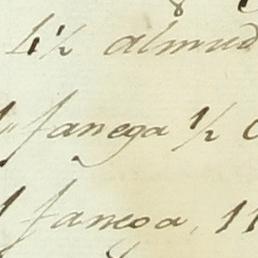 1½ almud
fanega ½
fanega, 11